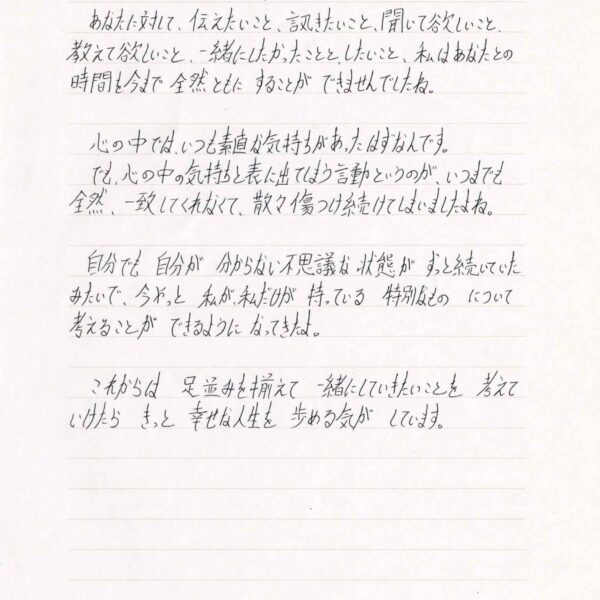 あなたに対して、伝えたいこと、訊きたいこと、聞いて欲しいこと、
教えて欲しいこと、一緒にしたかったことと、したいこと、私はあなたとの
時間を今まで 全然ともに することが できませんでしたね。
心の中では、いつも素直な気持ちがあったはずなんです。
でも、心の中の気持ちと表に出てしまう言動というのが、いつまでも
全然、一致してくれなくて、散々傷つけ続けてしまいましたよね。
自分でも 自分が 分からない不思議な 状態が ずっと続いていた
みたいで、今やっと 私が、私だけが 持っている 特別なもの について
考えることが できるように なってきたよ。
これからは 足並みを揃えて 一緒にしていきたいことを 考えて
いけたら きっと 幸せな人生を 歩める気が しています。